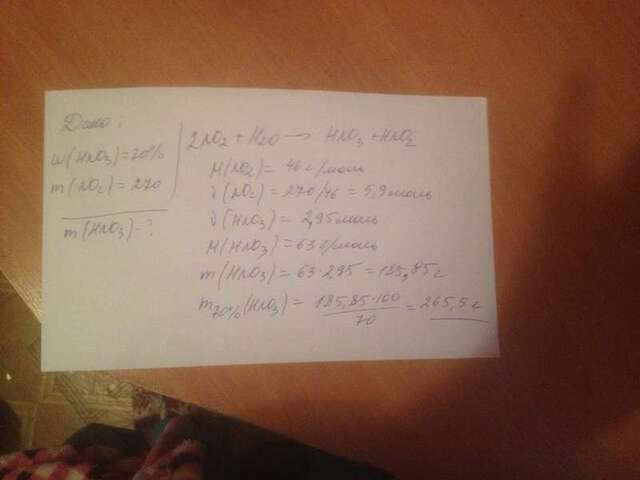 Дано:
w(HNO3)=70%
m(NO2)=270
m(HNO3)-?
2NO2+H2O→ HNO3+HNO2
M(NO2)= 46 г/моль
ν(NO2)= 270/46 = 5,9 моль
ν(HNO3)= 2,95 моль
M(HNO3)=63 г/моль
m(HNO3)= 63·295=185,85 г
m70%(HNO3)= 185,85·100/70 = 265,5 г